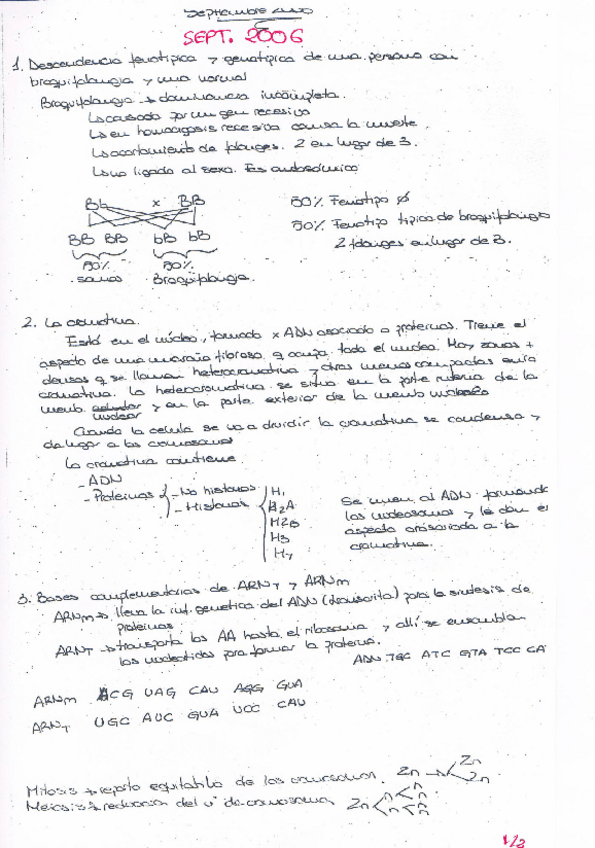 Septiembre
SEPT. 2006
1. Descendencia fenotípica y genotípica de una persona con
braquifalangia y una normal
Braquifalangia → dominancia incompleta.
↳ causado por un gen recesivo
↳ en homocigosis recesiva causa la muerte.
↳ acortamiento de falanges. 2 en lugar de 3.
↳ no ligado al sexo. Es autosómico
Bb x BB
50% Fenotipo
50% Fenotipo típico de braquifalangia
2 falanges en lugar de 3.
BB BB bB bB
50% 50%
sanos Braquifalangia.
2. La cromatina.
Está en el núcleo, formado x ADN asociado a proteínas. Tiene el
aspecto de una maraña fibrosa q ocupa todo el núcleo. Hay zonas +
densas q se llaman heterocromatina y otras menos compactas
cromatina. La heterocromatina se sitúa en la parte interna de la
memb. nuclear y en la parte exterior de la memb
Cuando la célula se va a dividir la cromatina se condensa y
da lugar a los cromosomas
La cromatina contiene
- ADN
- Proteínas - No histonas H1
- Histonas H2A
H2B
H3
H4
Se unen al ADN formando
los nucleosomas y le dan el
aspecto a la
cromatina.
3. Bases complementarias de ARNT y ARNm
ARNm → lleva la inf. genética del ADN (transcrita) para la síntesis de
proteínas.
ARNT → transporta los AA hasta el ribosoma y allí se ensamblan
los nucleótidos para formar la proteína.
ADN TGC ATC GTA TCC CA
ARNm ACG UAG CAU AGG GUA
ARNT UGC AUC GUA UCC CAU
Mitosis → reparto equitativo de los cromosomas. 2n → 2n 2n
Meiosis → reducción del nº de cromosomas 2n n n n n
1/2